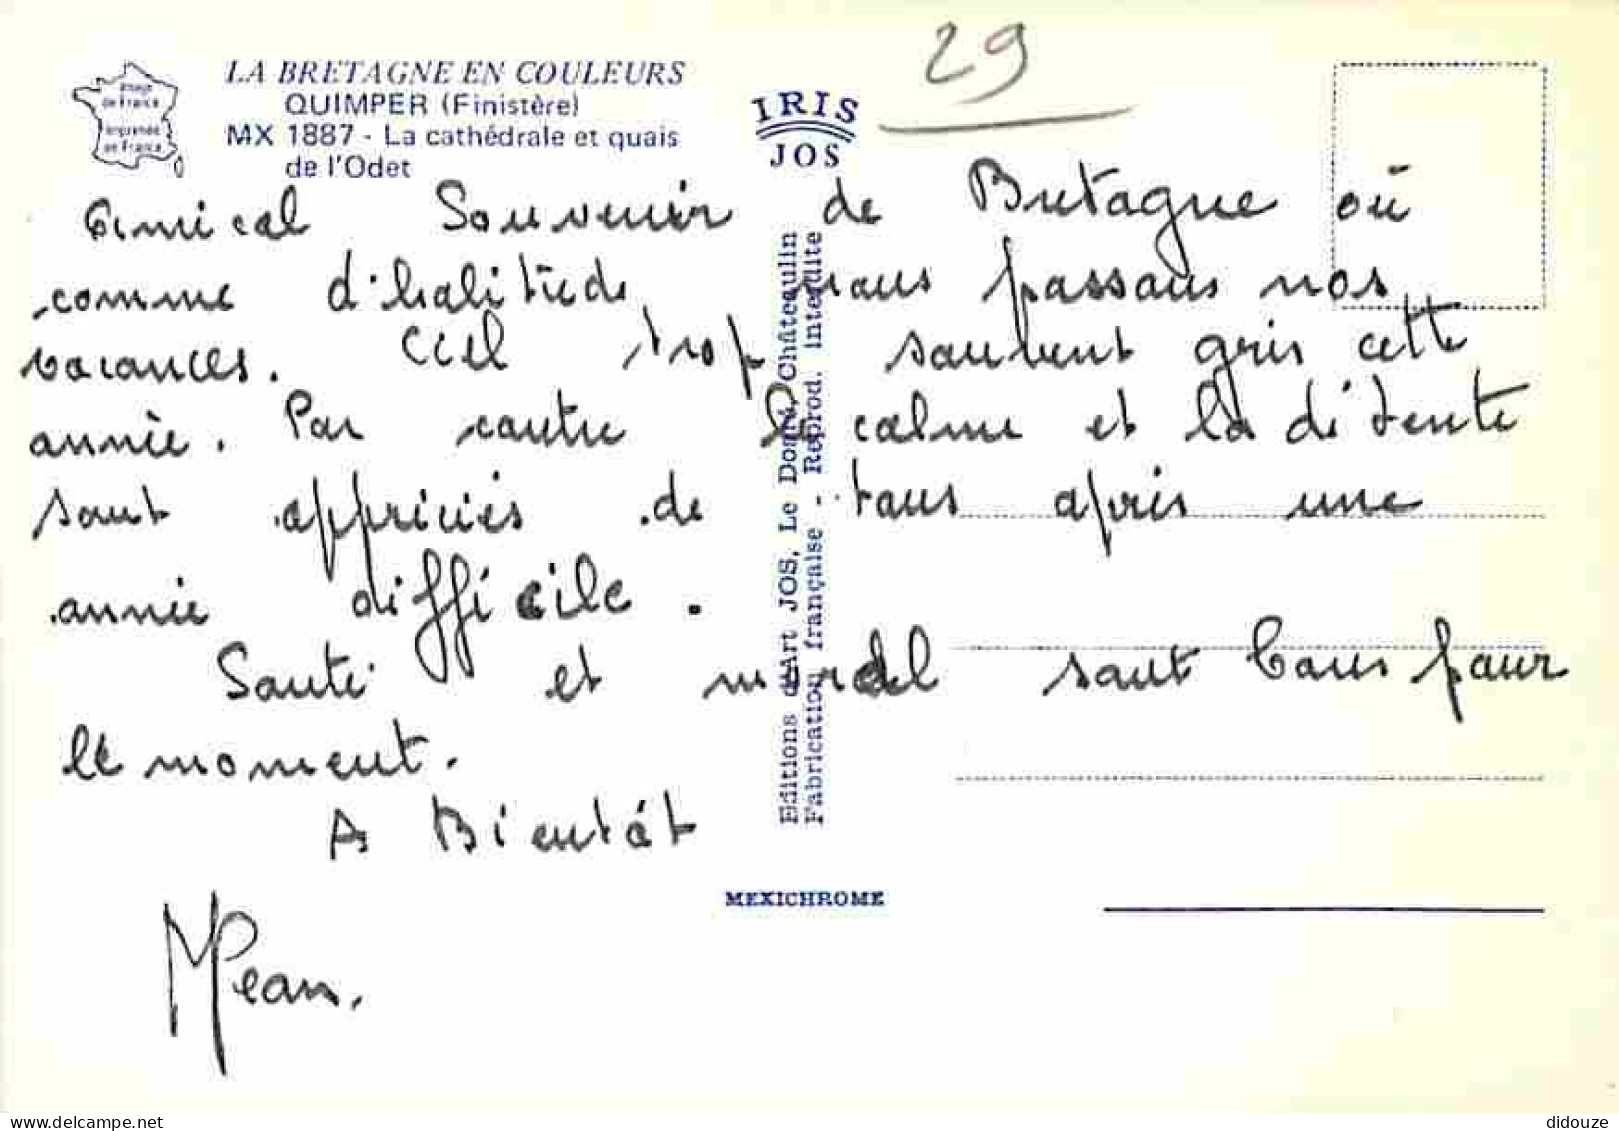 LA BRETAGNE EN COULEURS
QUIMPER (Finistère)
MX 1887 - La cathédrale et quais
de l'Odet
image
de France
imprimée
en France
IRIS
JOS
29
Amical Souvenir de Bretagne où
comme d'habitude nous passons nos
vacances. Ciel trop souvent gris cette
année. Par contre le calme et la détente
sont appréciés de tous après une
année difficile.
Santé et moral sont bons pour
le moment.
A Bientôt
Editions d'Art JOS, Le Doaré, Châteaulin
Fabrication française - Reprod. interdite
MEXICHROME
didouze @ delcampe.net